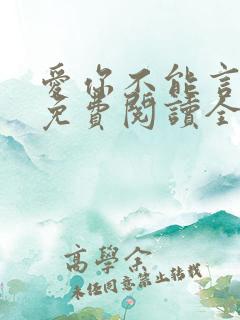 愛你不能言
免費閱讀全
高學余
未任同意禁止轉載